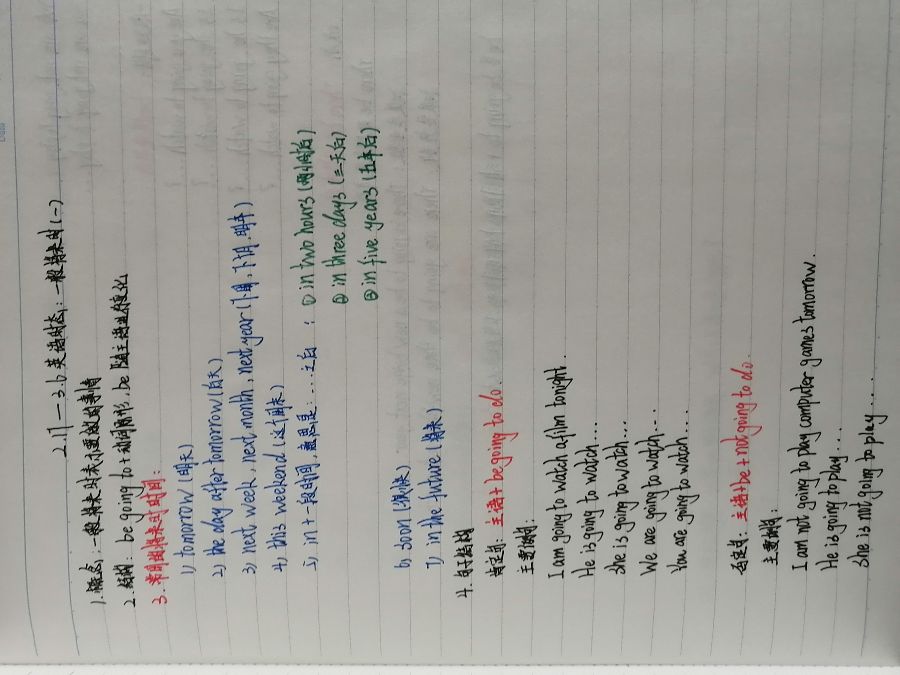 2.11—3.6 英语时态:一般将来时(一)
1.概念:一般将来时表示要做的事情
2.结构: be going to + 动词原形,be 随主语进行变化
3.常用的将来时时间:
1) tomorrow (明天)
2) the day after tomorrow (后天)
3) next week, next month, next year (下周,下个月,明年)
4) this weekend (这个周末)
5) in + 一段时间 意思是:...之后 : ① in two hours (两小时后)
② in three days (三天后)
③ in five years (五年后)
6) soon (很快)
7) in the future (将来)
4.句子结构
肯定式: 主语+ be going to do.
主要结构:
I am going to watch a film tonight.
He is going to watch...
She is going to watch...
We are going to watch...
You are going to watch...
否定式: 主语+be+not going to do.
主要结构:
I am not going to play computer games tomorrow.
He is going to play...
She is not going to play...